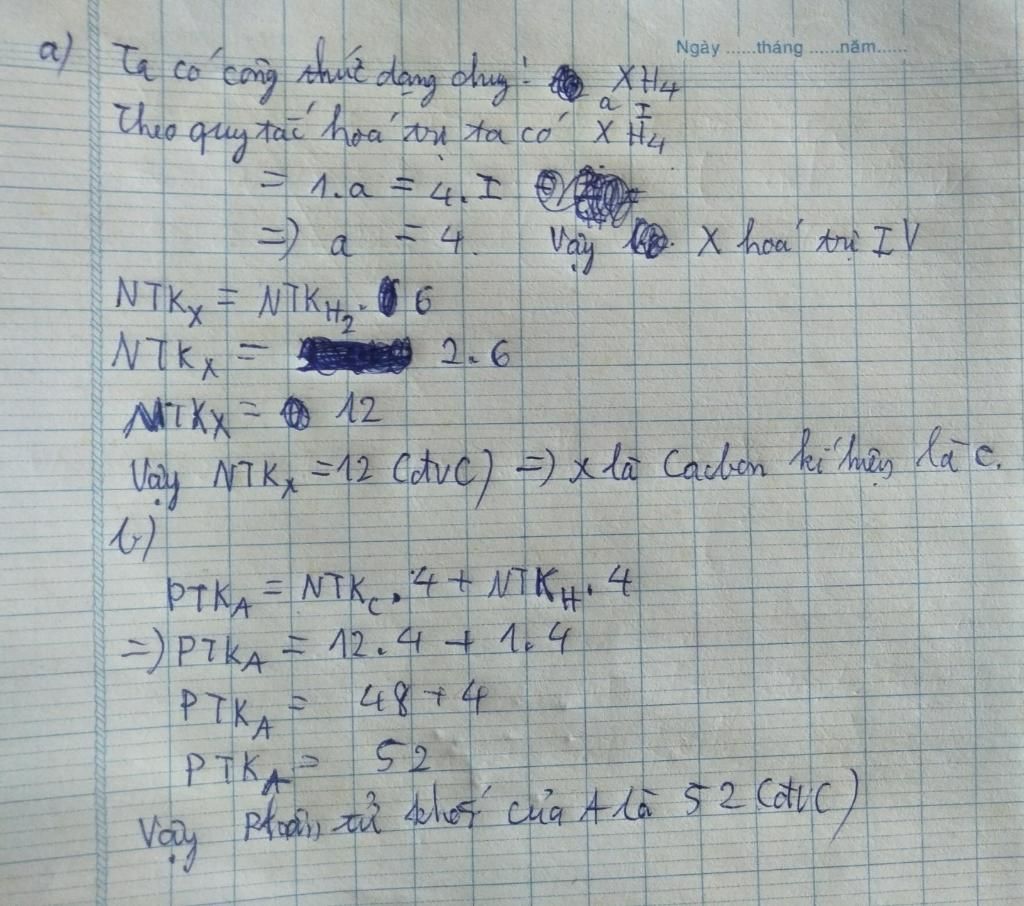 Ngày ......tháng ......năm......
a) Ta có công thức dạng chung: XH₄
a I
Theo quy tắc hoá trị ta có XH₄
= 1.a = 4.I
=> a = 4. Vậy X hoá trị IV
NTKₓ = NTK_H₂. 6
NTKₓ = 2.6
NTKₓ = 12
Vậy NTKₓ = 12 (đvC) => X là Cacbon kí hiệu là C.
b)
PTK_A = NTK_C. 4 + NTK_H. 4
=> PTK_A = 12.4 + 1.4
PTK_A = 48 + 4
PTK_A = 52
Vậy Phân tử khối của A là 52 (đvC)